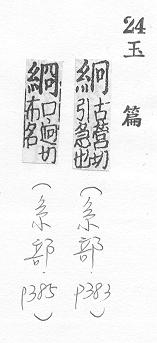 24 玉篇
絅 古營切
引急也
(糸部.p383)
綗 口逈切
布名
(糸部.p385)